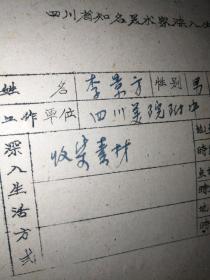 四川省知名美术家深入生
姓名 李景方 性别 男
工作单位 四川美院附中
深入生活方式 收集素材
时
点
时